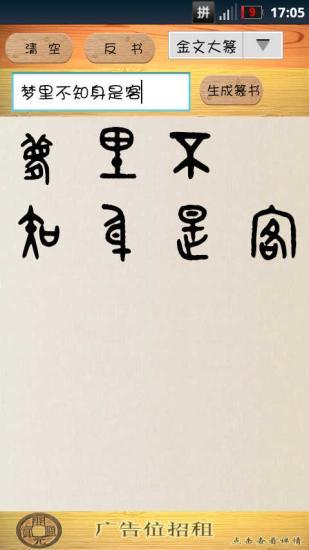 拼 9 17:05
清空 反书 金文大篆
梦里不知身是客 生成篆书
梦里不
知身是客
广告位招租
点击查看详情